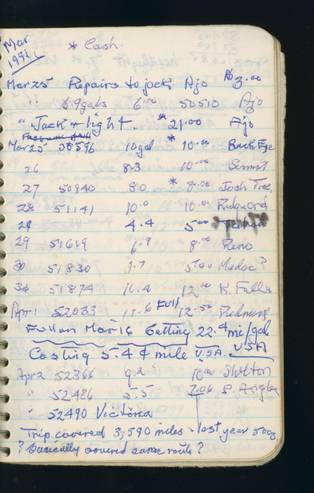 Mar
1991
* Cash
Mar 25 Repairs to jack Ajo $3.00
" 8.9 gals 6.00 50510 Ajo
" Jack + light. * 21.00 Ajo
Mar 25 50596 10 gal * 10.00 Buck Eye
26 8.3 10.00 Summit
27 50940 8.0 * 8.00 Josh Tree
28 51141 10.0 10.00
29 4.4 5.00
29 51619 6.9 8.00 Reno
30 51830 3.7 5.00 Modoc?
30 51874 10.4 12.00 K. Falls
Apr 1 52033 13.6 Full 12.50 Redmond
Full on Mar 16 Getting 22.4 mi/gal
Costing 5.4 ¢ mile U.S.A. U.S.A
Apr 2 52366 9.2 10.00 Shelton
" 52486 5.5 7.06 P. Angles
" 52490 Victoria
Trip covered 3,590 miles - last year 3509
? Basically covered same route?